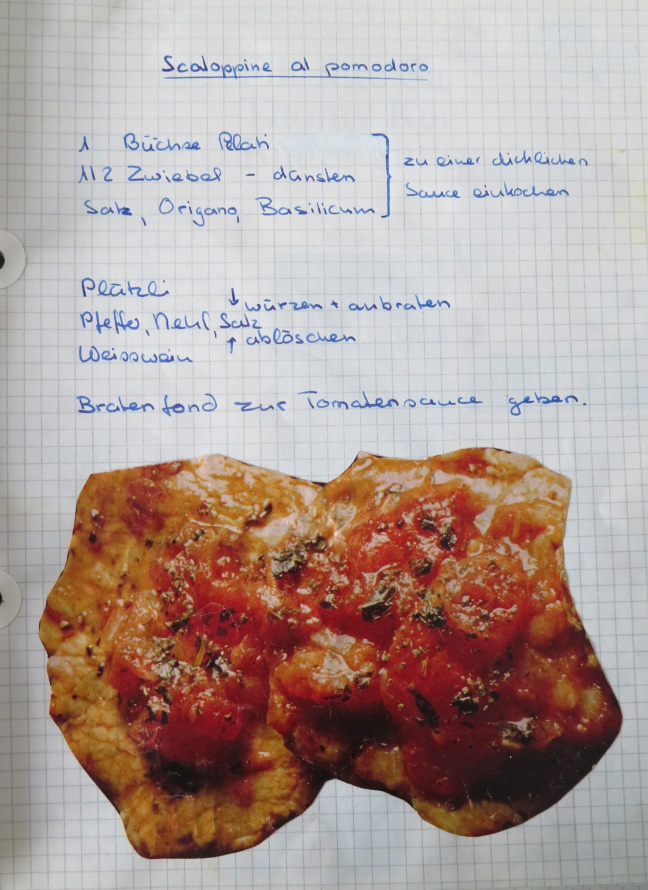 Scaloppine al pomodoro
1 Büchse Pelati
1/2 Zwiebel - dünsten
Salz, Origano, Basilicum
zu einer dicklichen
Sauce einkochen
Plätzli
↓ würzen + anbraten
Pfeffer, Mehl, Salz
↑ ablöschen
Weisswein
Bratenfond zur Tomatensauce geben.